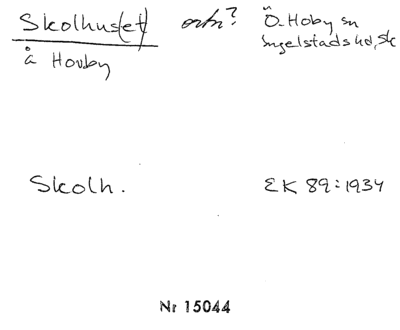 Skolhus(et) ortn? Ö. Hoby sn
å Hovby Ingelstads hd, Sk
Skolh. EK 89:1934
Nr 15044